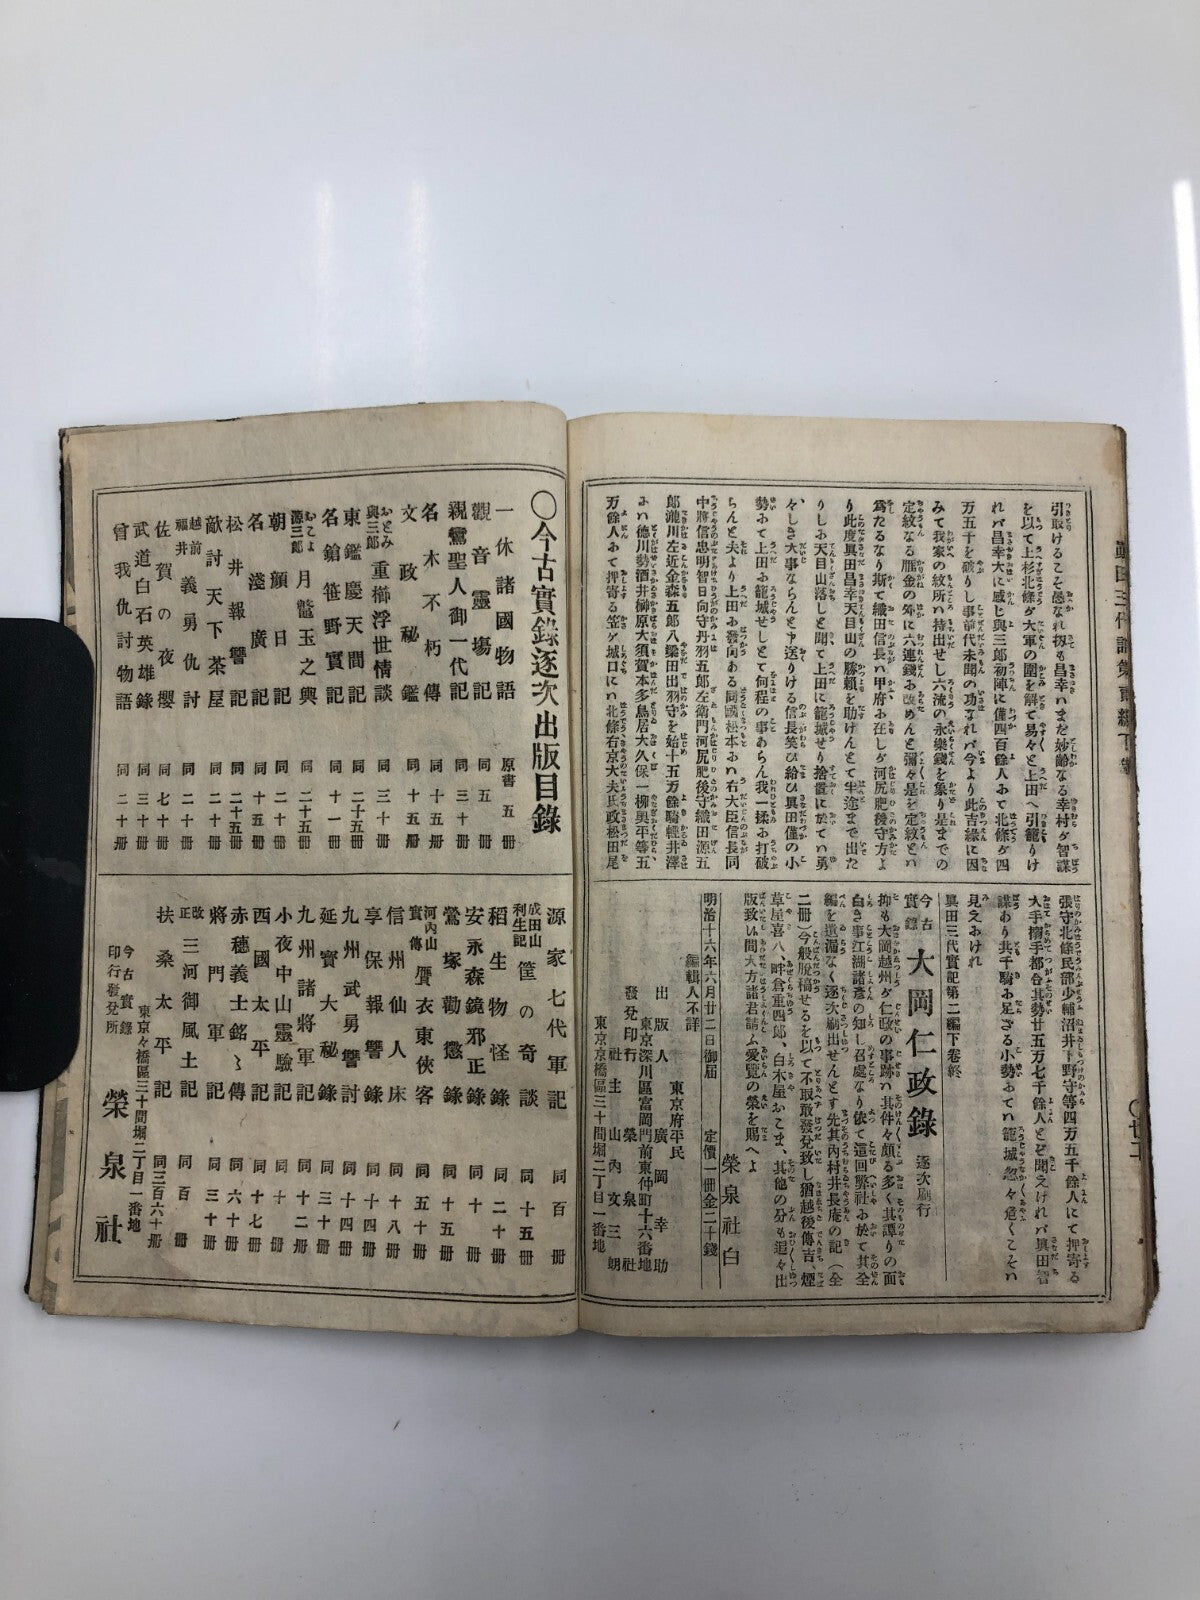 引取けるこそ愚なれ扨も昌幸ハまだ妙齢なる幸村が智謀
を以て上杉北條が大軍の圍を解て易々と上田へ引籠りけ
れバ昌幸大に感じ與三郎初陣に僅四百餘人みて北條が四
万五千を破りし事前代未聞の功なれバ今より此吉縁に因
みて我家の紋所ハ持出せし六流の永樂錢を象り是までの
定紋なる雁金の外に六連錢お改めんと彌々是を定紋とハ
為たるなり斯て織田信長ハ甲府お在しが河尻肥後守方よ
り此度眞田昌幸天目山の勝頼を助けんとて半途まで出た
りしお天目山落しと聞て上田に籠城せり捨置に於てハ勇
々しき大事ならんと申送りける信長笑ひ給ひ眞田僅の小
勢みて上田お籠城せしとて何程の事あらん我一揉お打破
らんと夫より上田お發向ある同國松本おハ右大臣信長同
中將信忠明智日向守丹羽五郎左衛門河尻肥後守織田源五
郎瀧川左近金森五郎八梁田出羽守を始十五万餘騎輕井澤
おハ徳川勢酒井榊原大須賀本多鳥居大久保一柳奥平等五
万餘人みて押寄る笠ヶ城口にハ北條右京大夫氏政松田尾
張守北條民部少輔沼井下野守等四万五千餘人にて押寄る
大手搦手都合其勢廿五万七千餘人とぞ聞えけれバ眞田智
謀あり共千騎お足ざる小勢みてハ籠城忽々危くこそハ
見えおけれ
眞田三代實記第二編下巻終
今古實錄 大岡仁政錄 逐次刷行
抑も大岡越州が仁政の事跡ハ其件々頗る多く其譚りの面
白き事江湖諸彥の知し召處なり依て這回弊社お於て其全
編を遺漏なく逐次刷出せんとす先其内村井長庵の記(全
二冊)今般脱稿せるを以て不取敢發兌致し猶越後傳吉、煙
草屋喜八、畔倉重四郎、白木屋おこま、其他の分も追々出
版致い間大方諸君請ふ愛覽の榮を賜へよ
榮泉社白
明治十六年六月廿二日御届 定價一冊金二十錢
編輯人不詳
東京府平民
出版人 廣岡幸助
東京深川區富岡門前東仲町十六番地
發兌印行 榮泉社
社主 山内文三朗
東京京橋區三十間堀二丁目一番地
○今古實錄逐次出版目錄
一休諸國物語 原書五冊
觀音靈場記 同五冊
親鸞聖人御一代記 同三十冊
名木不朽傳 同十五冊
文政秘鑑 同十五冊
おとみ與三郎 重櫛浮世情談 同三十冊
東鑑慶天間記 同二十五冊
名鎗笹野實記 同十一冊
おこよ源三郎 月鼈玉之輿 同二十五冊
朝顔日記 同二十冊
名淺廣記 同十五冊
松井報讐記 同二十五冊
敵討天下茶屋 同二十冊
越前福井 義勇仇討 同二十冊
佐賀の夜櫻 同七十冊
武道白石英雄錄 同三十冊
曾我仇討物語 同二十冊
源家七代軍記 同百冊
成田山利生記 筐の奇談 同十五冊
稻生物怪錄 同二十冊
安永森鏡邪正錄 同十冊
鶯塚勸懲錄 同十五冊
河内山實傳 贋衣東俠客 同五十冊
信州仙人床 同十八冊
享保報讐錄 同十冊
九州武勇讐討 同十四冊
延寶大秘錄 同三十冊
九州諸將軍記 同十二冊
小夜中山靈驗記 同十冊
西國太平記 同十七冊
赤穗義士銘々傳 同六十冊
將門軍記 同三十冊
改正 三河御風土記 同百冊
扶桑太平記 同三百六十冊
東京々橋區三十間堀二丁目一番地
今古實錄印行發兌所 榮泉社